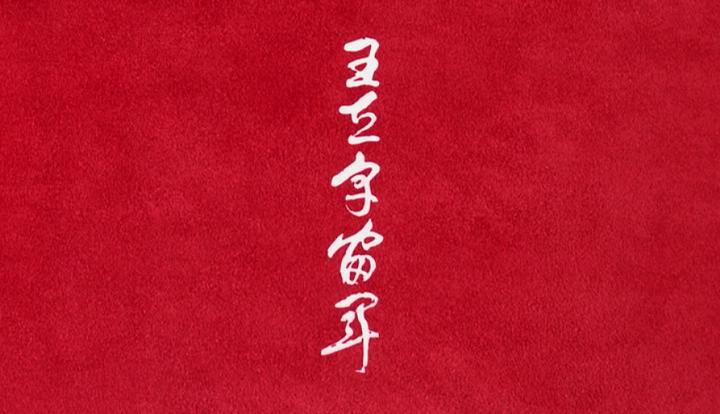 王立宇宙軍